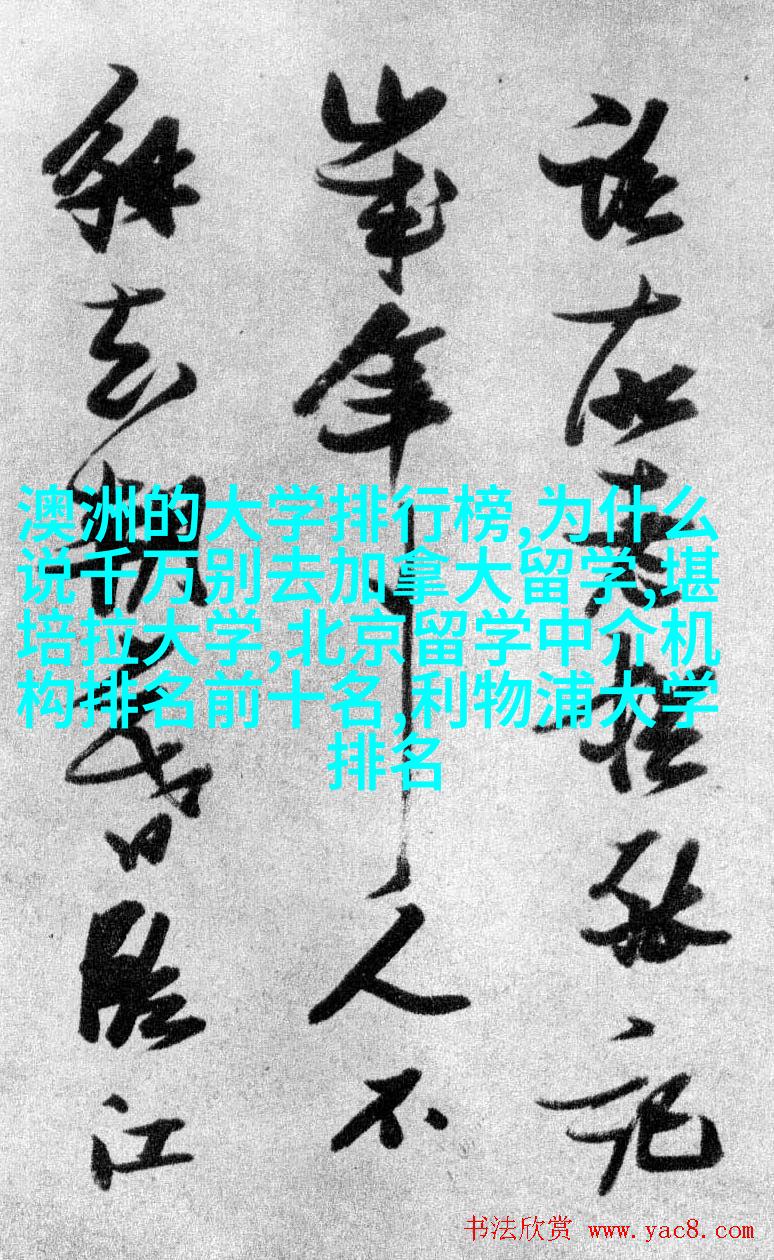 在
歲年人不
去朝昏臨江
澳洲的大学排行榜,为什么
说千万别去加拿大留学,堪
培拉大学,北京留学中介机
构排名前十名,利物浦大学
排名
书法欣赏 www.yac8.com